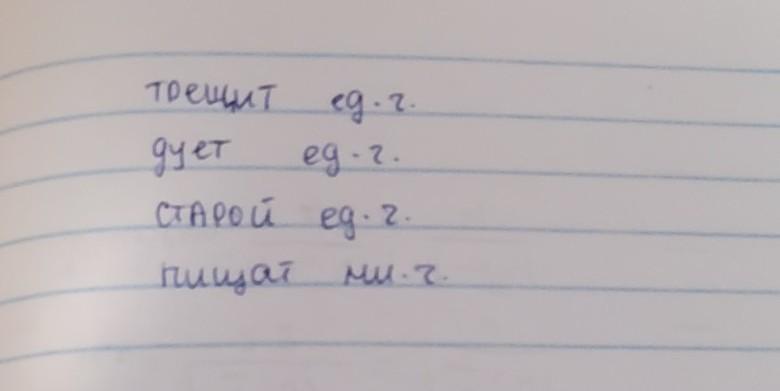 трещит ед.ч.
дует ед.ч.
старой ед.ч.
пищат мн.ч.